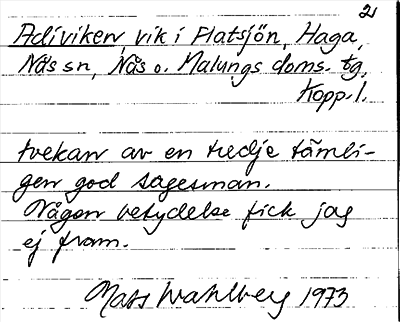 2
Adliviken, vik i Flatsjön, Haga,
Nås sn, Nås o. Malungs doms. tg,
Kopp. l.
tvekan av en tredje tämli-
gen god sagesman.
Någon betydelse fick jag
ej fram.
Mats Wahlberg 1973